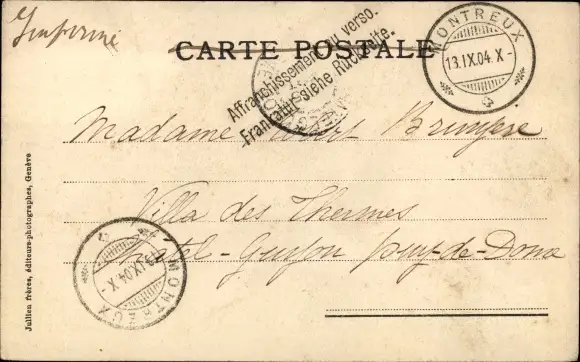 Imprimé
CARTE POSTALE
Affranchissement au verso.
Frankatur siehe Rückseite.
MONTREUX
13.IX.04.X-
Madame Bruyere
Villa des Thermes
Guyon Puy-de-Dome
MONTREUX
13.IX.04.X-
Jullien frères, éditeurs-photographes, Genève